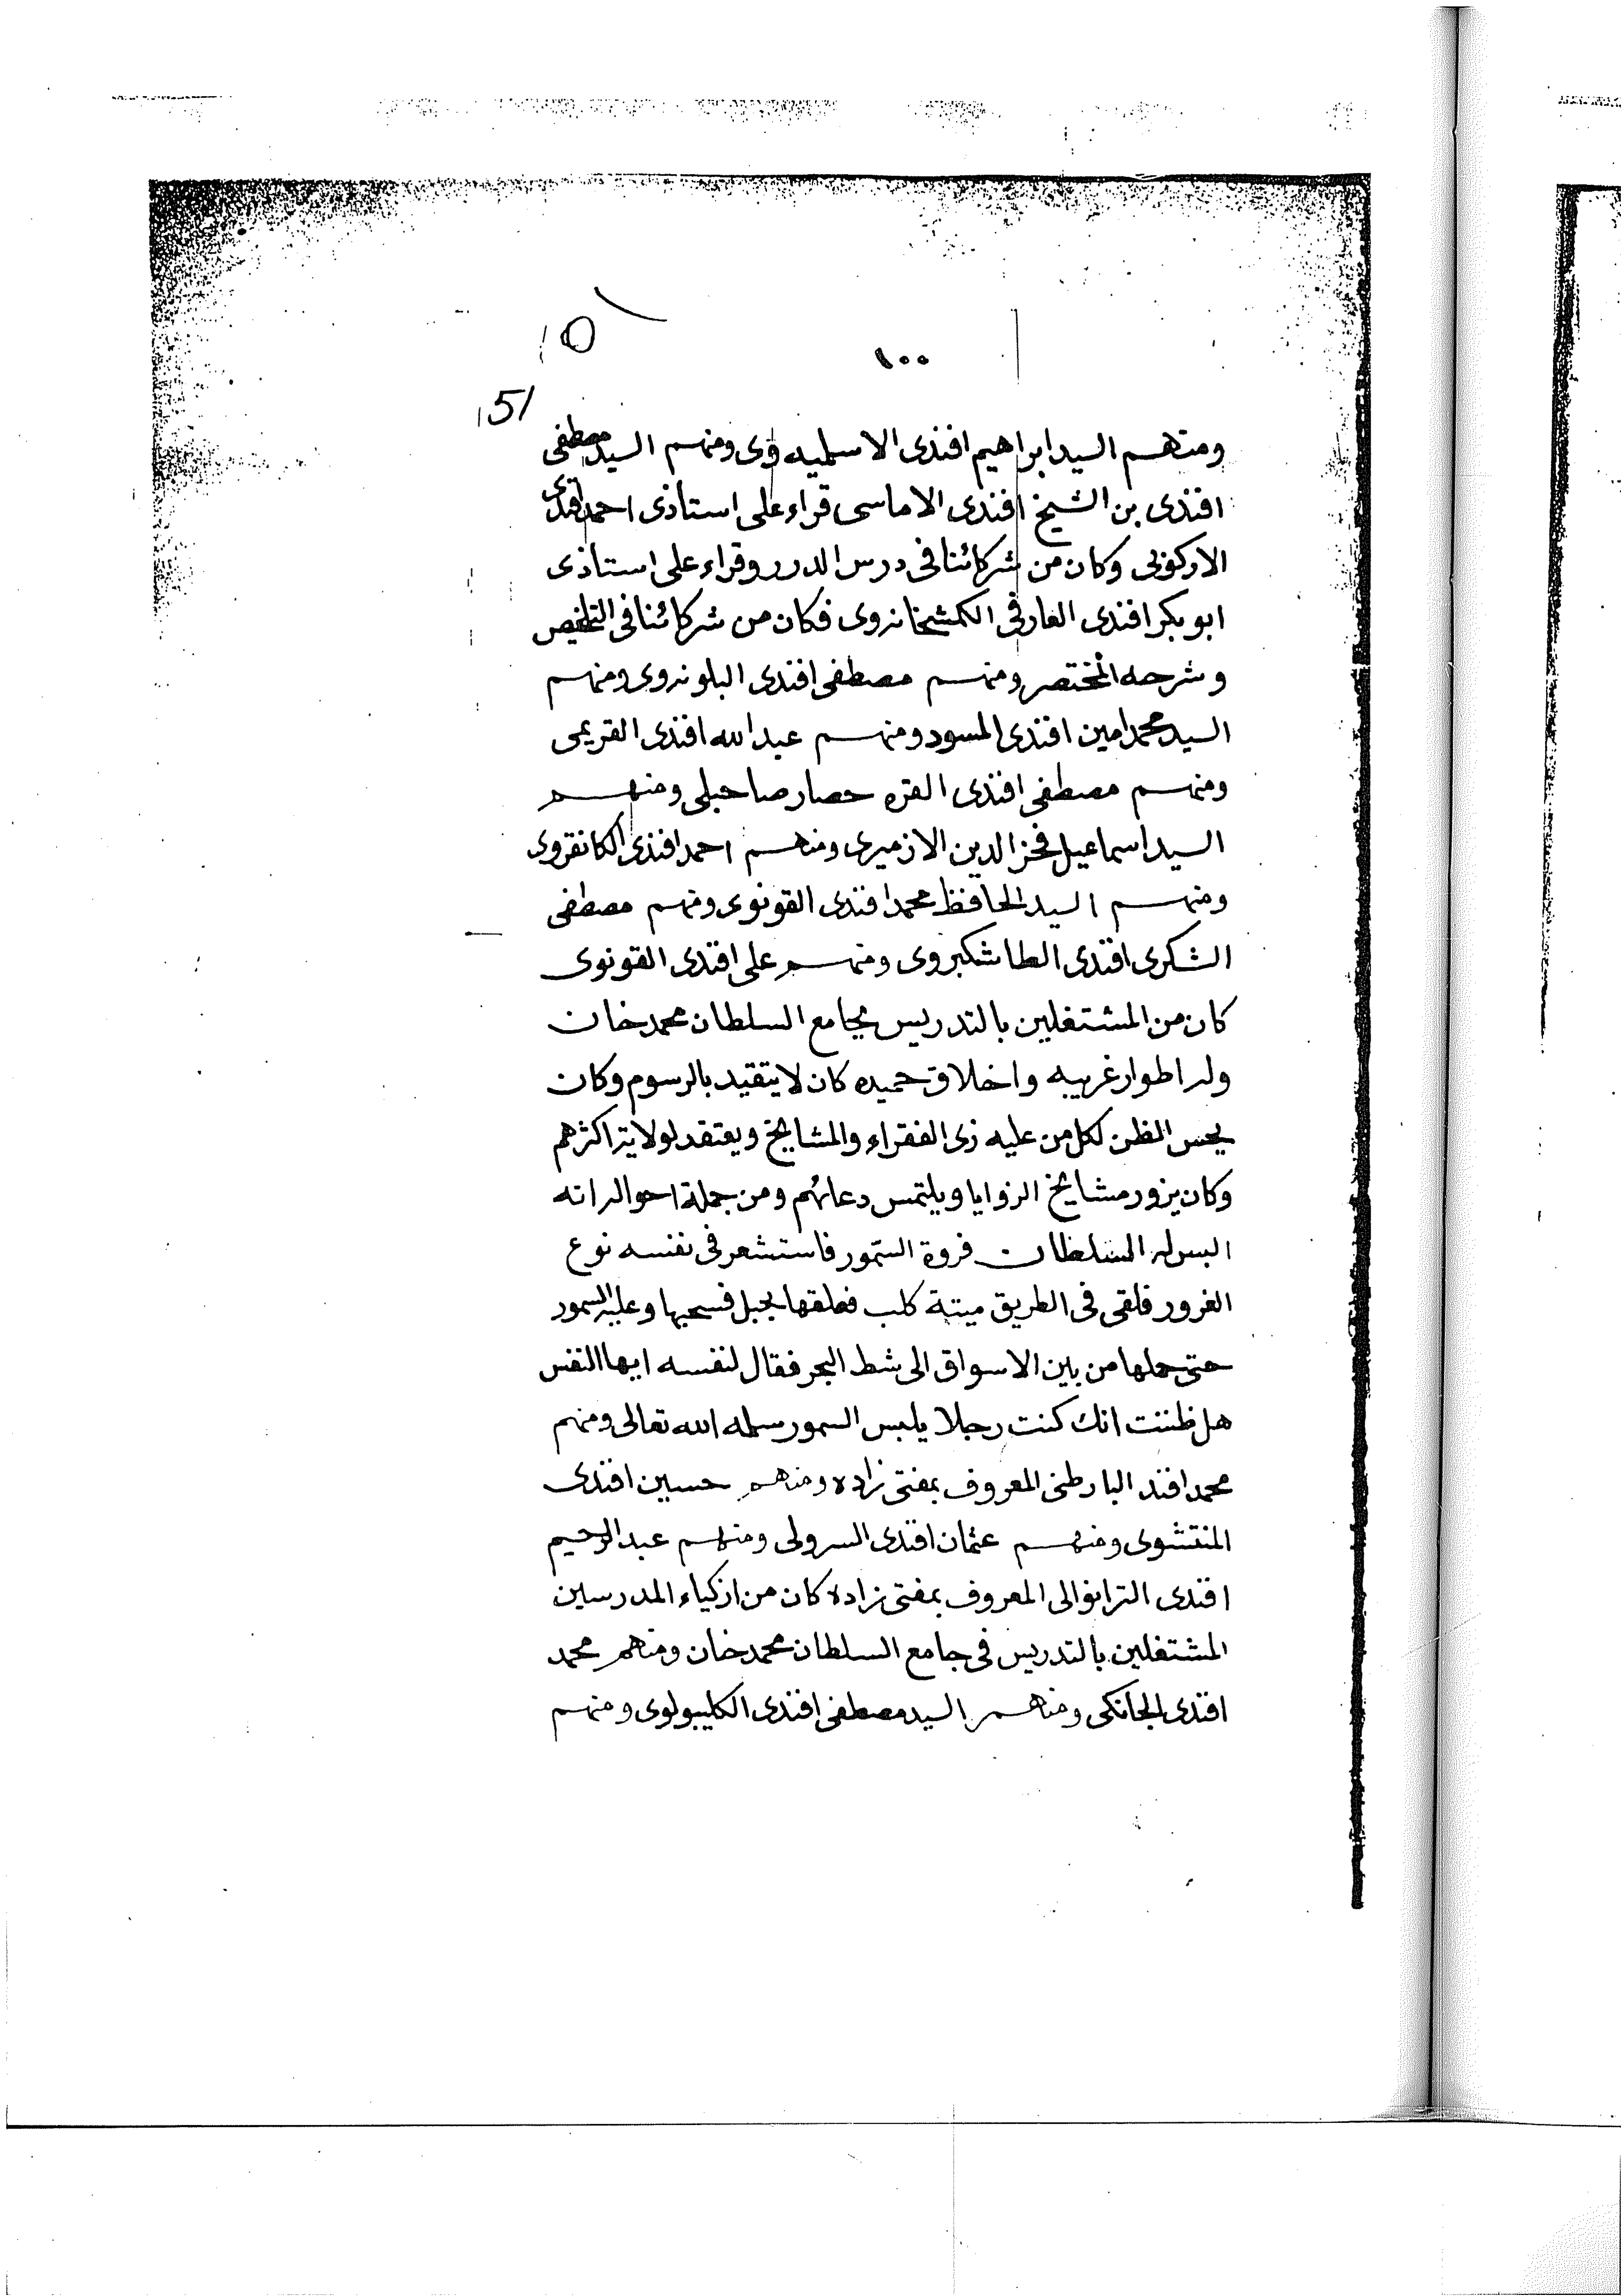 ١٠٠
51
ومنهم السيد ابراهيم افندى الاسلميه وى ومنهم السيد مصطفى
افندى بن الشيخ افندى الاماسى قراء على استاذى احمد افندى
الاركوبى وكان من شركائنا فى درس الدرر وقراء على استاذى
ابو بكر افندى العارفى الكمشخانروى فكان من شركائنا فى التلخيص
وشرحه المختصر ومنهم مصطفى افندى البلونروى ومنهم
السيد محمد امين افندى المسود ومنهم عبد الله افندى القريمى
ومنهم مصطفى افندى القره حصار صاحبلى ومنهم
السيد اسماعيل فخر الدين الازميرى ومنهم احمد افندى الكانقروى
ومنهم السيد الحافظ محمد افندى القونوى ومنهم مصطفى
الشكرى افندى الطاشكبروى ومنهم على افندى القونوى
كان من المشتغلين بالتدريس بجامع السلطان محمد خان
وله اطوار غريبه واخلاق حميده كان لا يتقيد بالرسوم وكان
يحس الظن لكل من عليه زى الفقراء والمشايخ ويعتقد لولاية اكثرهم
وكان يزور مشايخ الزوايا ويلتمس دعائهم ومن جملة احواله انه
البس له السلطان فروة السمّور فاستشعر فى نفسه نوع
الغرور فلقى فى الطريق ميتة كلب فعلقها بحبل فسحبها وعليه السمور
حتى حملها من بين الاسواق الى شط البحر فقال لنفسه ايها النفس
هل ظننت انك كنت رجلا يلبس السمور سلمه الله تعالى ومنهم
محمد افند البارطنى المعروف بمفتى زاده ومنهم حسين افندى
المنتشوى ومنهم عثمان افندى السرولى ومنهم عبد الرحيم
افندى الترانوالى المعروف بمفتى زاده كان من ازكياء المدرسين
المشتغلين بالتدريس فى جامع السلطان محمد خان ومنهم محمد
افندى الجانكى ومنهم السيد مصطفى افندى الكليبولوى ومنهم